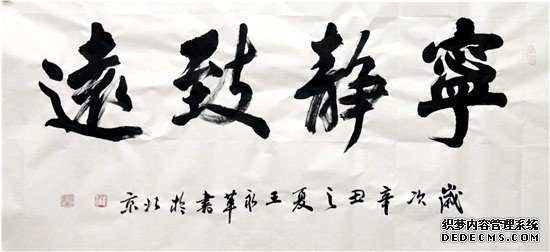 寧静致遠
歲次辛丑之夏王永華書於北京
织梦内容管理系统
DEDECMS.COM